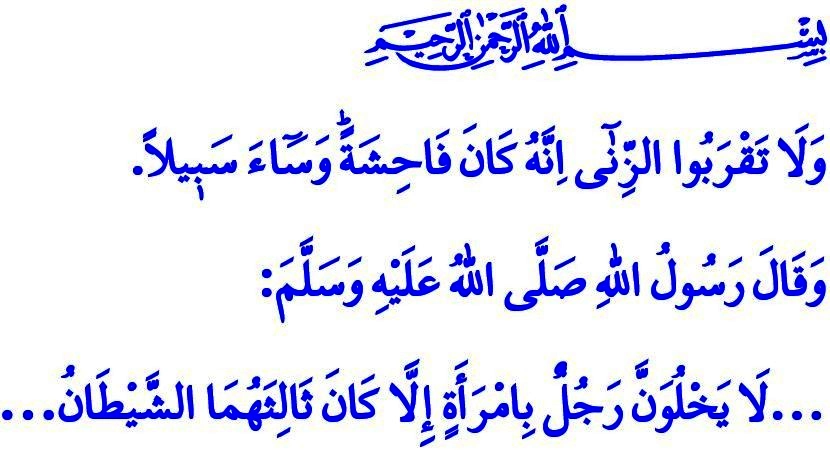 بِسْمِ اللهِ الرَّحْمٰنِ الرَّحِيمِ
وَلَا تَقْرَبُوا الزِّنٰٓى اِنَّهُ كَانَ فَاحِشَةًۜ وَسَٓاءَ سَب۪يلاً.
وَقَالَ رَسُولُ اللهِ صَلَّى اللهُ عَلَيْهِ وَسَلَّمَ:
...لَا يَخْلُوَنَّ رَجُلٌ بِامْرَأَةٍ إِلَّا كَانَ ثَالِثَهُمَا الشَّيْطَانُ...